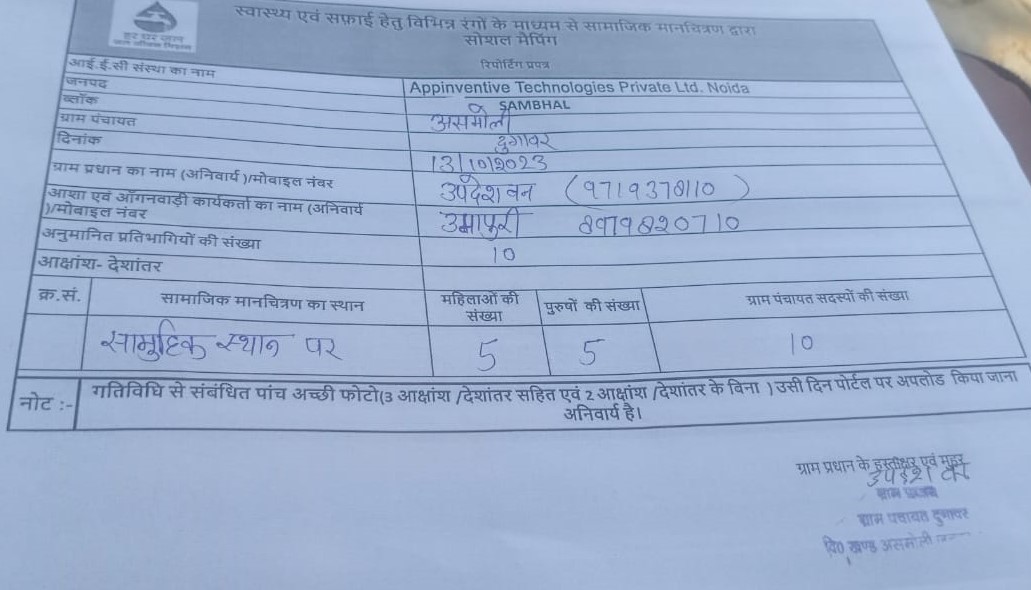 हर घर जल
जल जीवन मिशन
स्वास्थ्य एवं सफ़ाई हेतु विभिन्न रंगों के माध्यम से सामाजिक मानचित्रण द्वारा
सोशल मैपिंग
रिपोर्टिंग प्रपत्र
आई.ई.सी संस्था का नाम Appinventive Technologies Private Ltd. Noida
जनपद SAMBHAL
ब्लॉक असमोली
ग्राम पंचायत दुगावर
दिनांक 13/10/2023
ग्राम प्रधान का नाम (अनिवार्य )/मोबाइल नंबर उपदेश वन (9719378110)
आशा एवं आँगनवाड़ी कार्यकर्ता का नाम (अनिवार्य
)/मोबाइल नंबर उमापुरी 8979820710
अनुमानित प्रतिभागियों की संख्या 10
आक्षांश- देशांतर
क्र.सं. सामाजिक मानचित्रण का स्थान महिलाओं की संख्या पुरुषों की संख्या ग्राम पंचायत सदस्यों की संख्या
सामुहिक स्थान पर 5 5 10
नोट :- गतिविधि से संबंधित पांच अच्छी फोटो(3 आक्षांश /देशांतर सहित एवं 2 आक्षांश /देशांतर के बिना ) उसी दिन पोर्टल पर अपलोड किया जाना
अनिवार्य है।
ग्राम प्रधान के हस्ताक्षर एवं मुहर
उपदेश वन
ग्राम प्रधान
ग्राम पंचायत दुगावर
वि० खण्ड असमोली